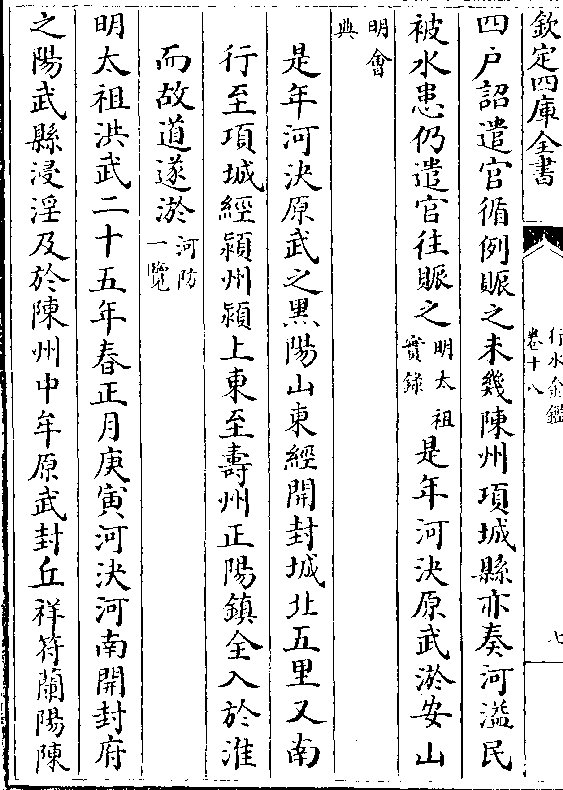 欽定四庫全書
行水金鑑
卷十八
七
四户詔遣官循例賑之未幾陳州項城縣亦奏河溢民
被水患仍遣官往賑之明太祖實録是年河決原武淤安山
明會典
是年河決原武之黑陽山東經開封城北五里又南
行至項城經潁州潁上東至壽州正陽鎮全入於淮
而故道遂淤河防一覽
明太祖洪武二十五年春正月庚寅河決河南開封府
之陽武縣浸淫及於陳州中牟原武封丘祥符蘭陽陳